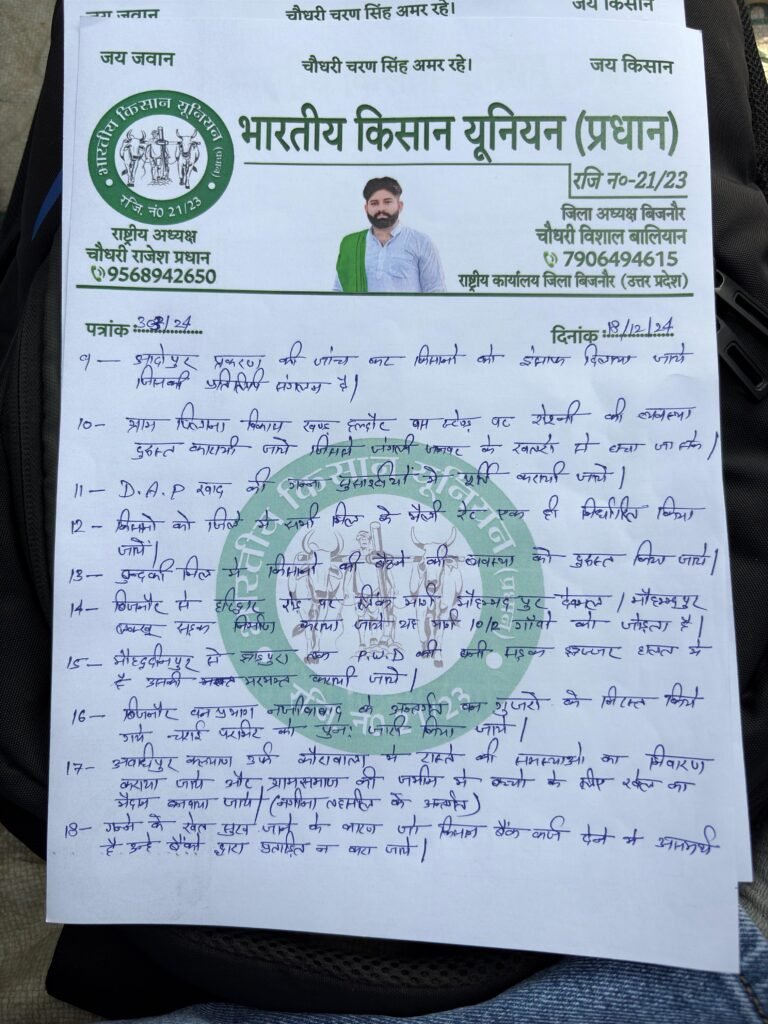 चौधरी चरण सिंह अमर रहे।
जय जवान चौधरी चरण सिंह अमर रहे। जय किसान
भारतीय किसान यूनियन (प्रधान)
रजि. नं० 21/23
भारतीय किसान यूनियन (प्रधान)
रजि न०-21/23
राष्ट्रीय अध्यक्ष
चौधरी राजेश प्रधान
9568942650
जिला अध्यक्ष बिजनौर
चौधरी विशाल बालियान
7906494615
राष्ट्रीय कार्यालय जिला बिजनौर (उत्तर प्रदेश)
पत्रांक /24 दिनांक 18/12/24
9 — प्रकरण की जांच कर किसानो को इंसाफ दिलाया जाये
जिसकी प्रतिलिपि संलग्न है।
10 — ग्राम विकास खण्ड हल्दौर बस स्टेन्ड पर रोशनी की व्यवस्था
दुरुस्त करायी जाये जिससे जंगली जानवर के खतरे से बचा जा सके।
11 — D.A.P खाद की गन्ना में पूर्ति करायी जाये।
12 — किसानो को जिले मे सभी मिल के मैली रेट एक ही निर्धारित किया
जाये।
13 — मिल मे किसानो की बैठने की व्यवस्था को दुरुस्त किया जाये।
14 — बिजनौर से हरिद्वार रोड पर लिंक मार्ग मौहम्मदपुर देवमल / मौहम्मदपुर
सड़क निर्माण कराया जाये यह मार्ग 10/12 गाँवो को जोड़ता है।
15 — से तक P.W.D की बनी सड़क जज्जर हालत मे
है उसकी मरम्मत करायी जाये।
16 — बिजनौर वन प्रभाग नजीबाबाद के अन्तर्गत वन गुजरो के निरस्त किये
गये चराई परमिट को पुनः जारी किया जाये।
17 — कल्याण उर्फ मे रास्ते की समस्याओ का निवारण
कराया जाये और ग्रामसमाज की जमीन मे बच्चो के लिए खेल का
मैदान बनाया जाये। (नगीना तहसील के अन्तर्गत)
18 — गन्ने के खेत सूख जाने के कारण जो किसान बैंक कर्ज देने मे असमर्थ
है उन्हे बैंको द्वारा प्रताड़ित न करा जाये।
भारतीय किसान यूनियन (प्रधान)
रजि. नं० 21/23